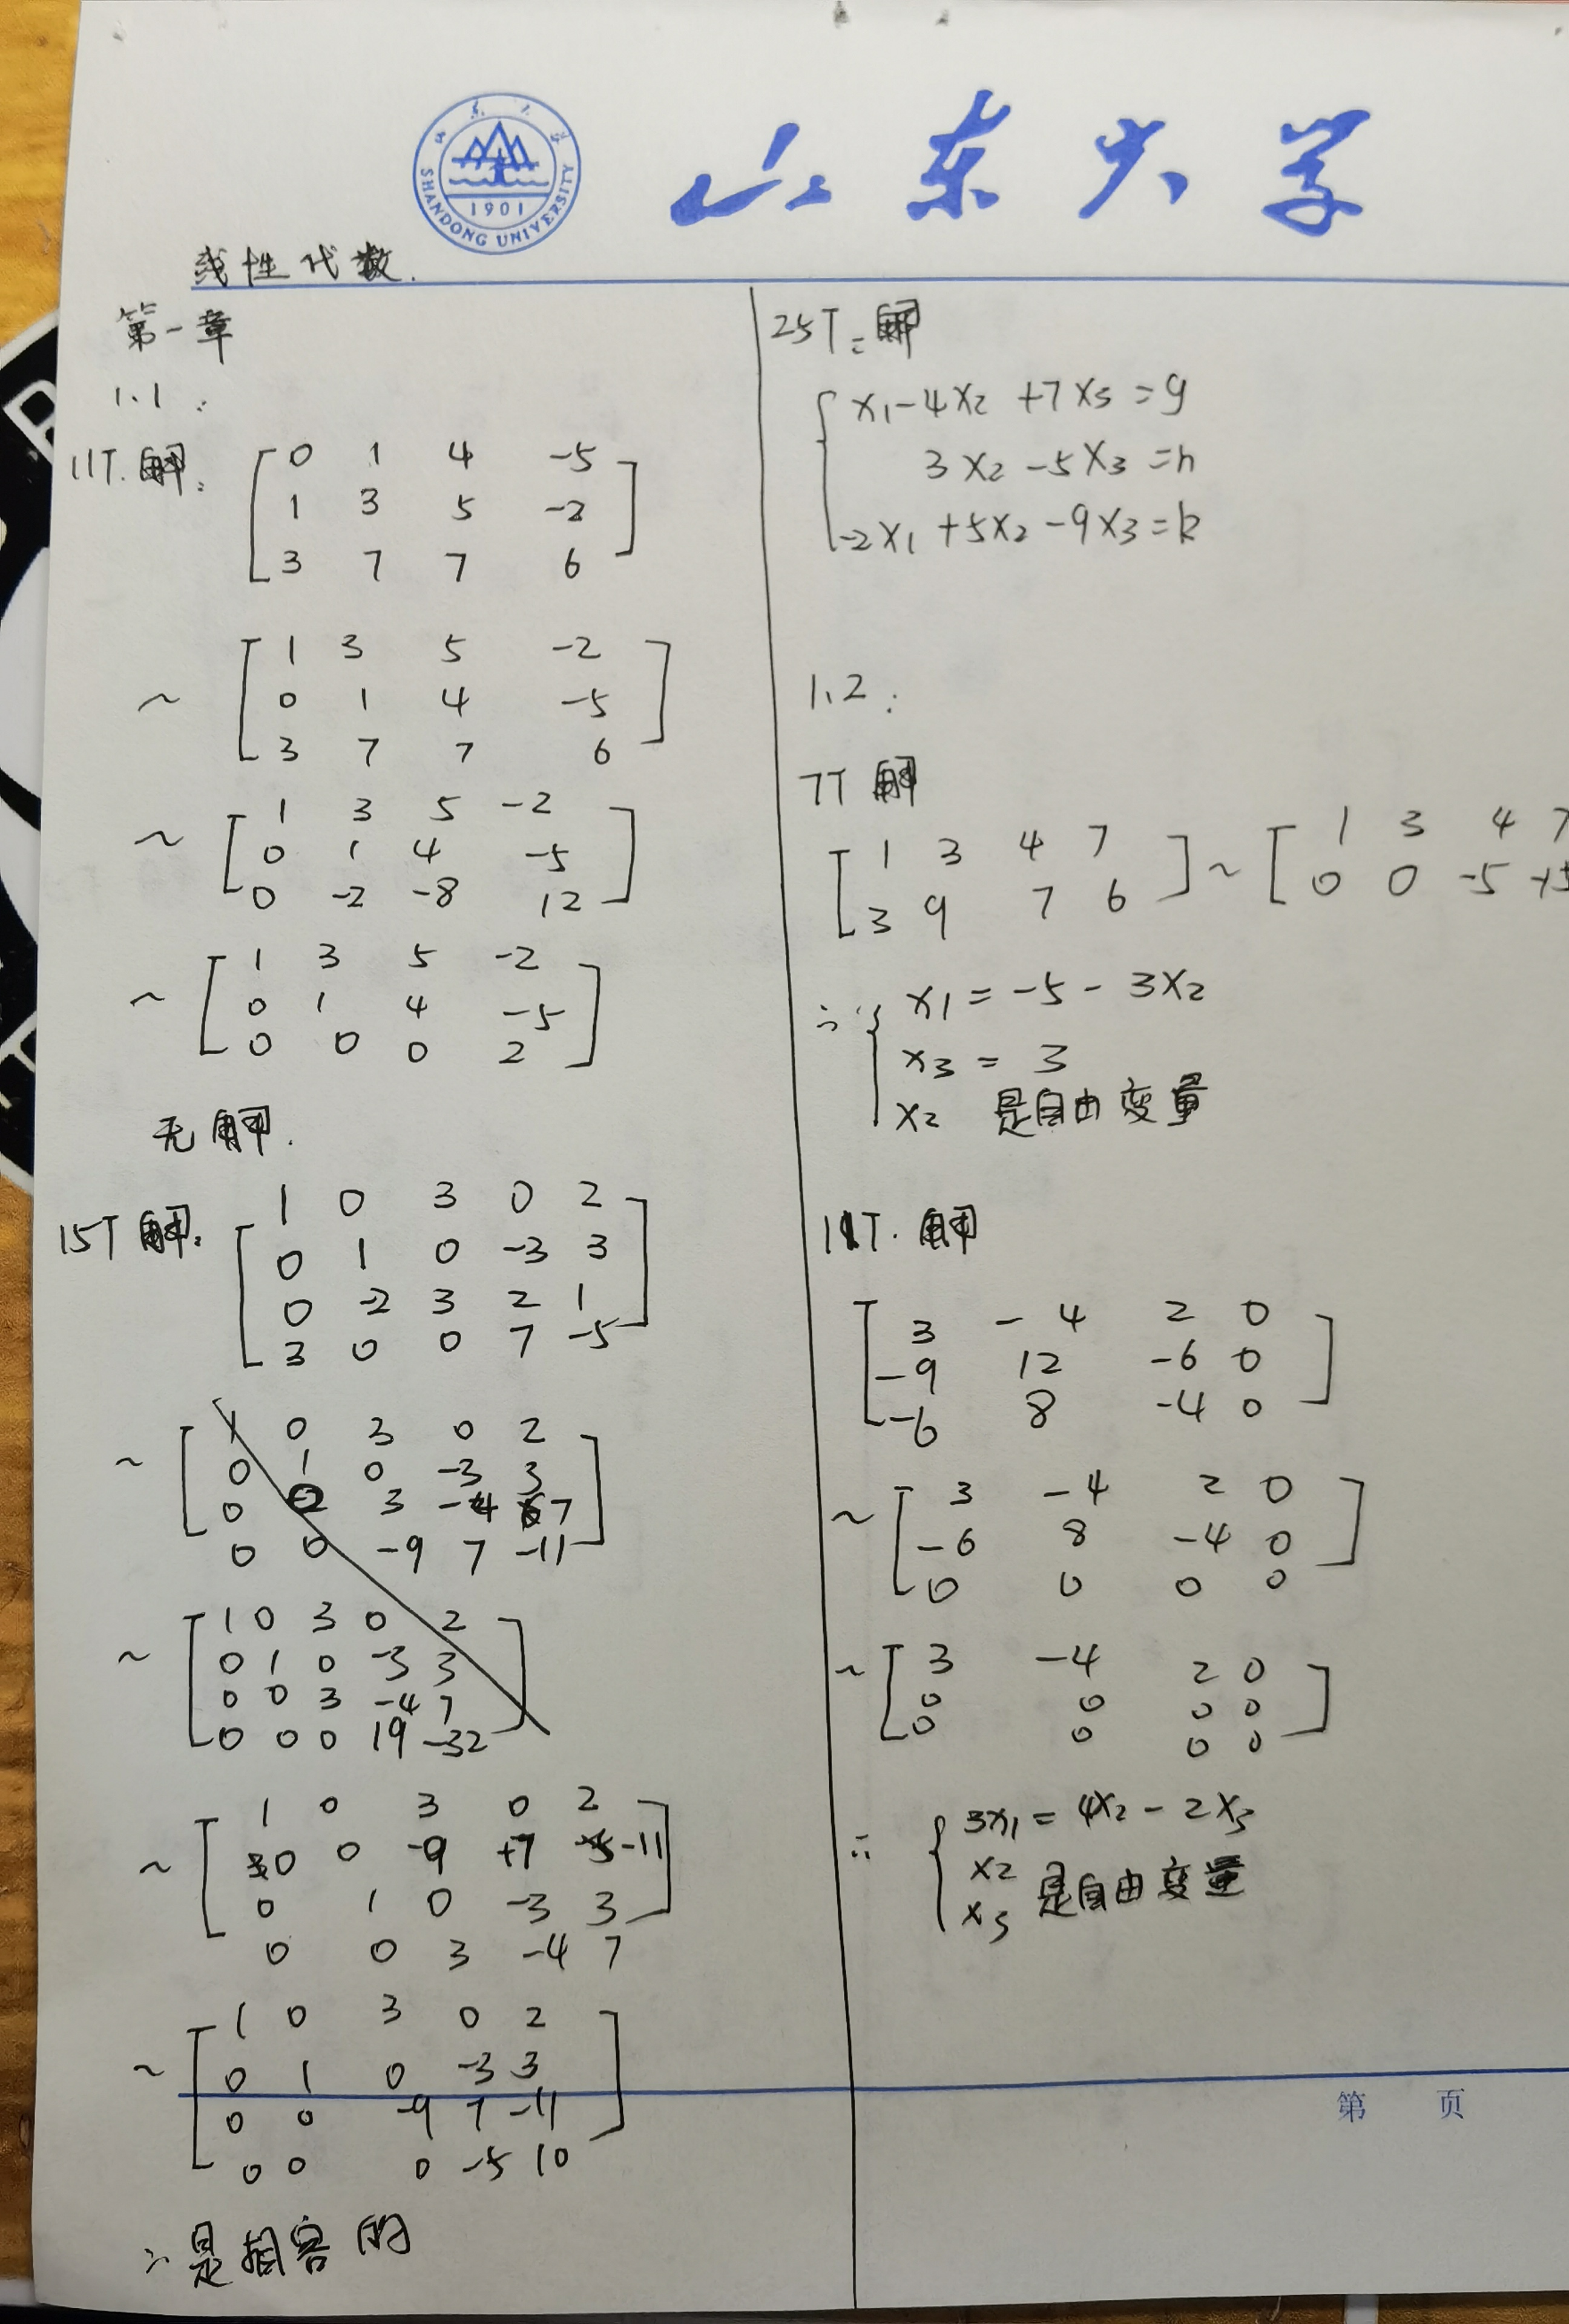 山东大学
SHANDONG UNIVERSITY
1901
线性代数.
第一章
1.1:
11T.解:
0 1 4 -5
1 3 5 -2
3 7 7 6
~
1 3 5 -2
0 1 4 -5
3 7 7 6
~
1 3 5 -2
0 1 4 -5
0 -2 -8 12
~
1 3 5 -2
0 1 4 -5
0 0 0 2
无解.
15T解:
1 0 3 0 2
0 1 0 -3 3
0 -2 3 2 1
3 0 0 7 -5
~
1 0 3 0 2
0 1 0 -3 3
0 0 3 -4 7
0 0 -9 7 -11
~
1 0 3 0 2
0 1 0 -3 3
0 0 3 -4 7
0 0 0 19 -32
~
1 0 3 0 2
0 0 -9 +7 -11
0 1 0 -3 3
0 0 3 -4 7
~
1 0 3 0 2
0 1 0 -3 3
0 0 -9 7 -11
0 0 0 -5 10
∴是相容的
25T:解
x1-4x2+7x3=g
3x2-5x3=h
-2x1+5x2-9x3=k
1.2:
7T 解
1 3 4 7
3 9 7 6
~
1 3 4 7
0 0 -5 -15
∴ x1=-5-3x2
x3=3
x2 是自由变量
11T.解
3 -4 2 0
-9 12 -6 0
-6 8 -4 0
~
3 -4 2 0
-6 8 -4 0
0 0 0 0
~
3 -4 2 0
0 0 0 0
0 0 0 0
∴ 3x1=4x2-2x3
x2
x3 是自由变量
第 页